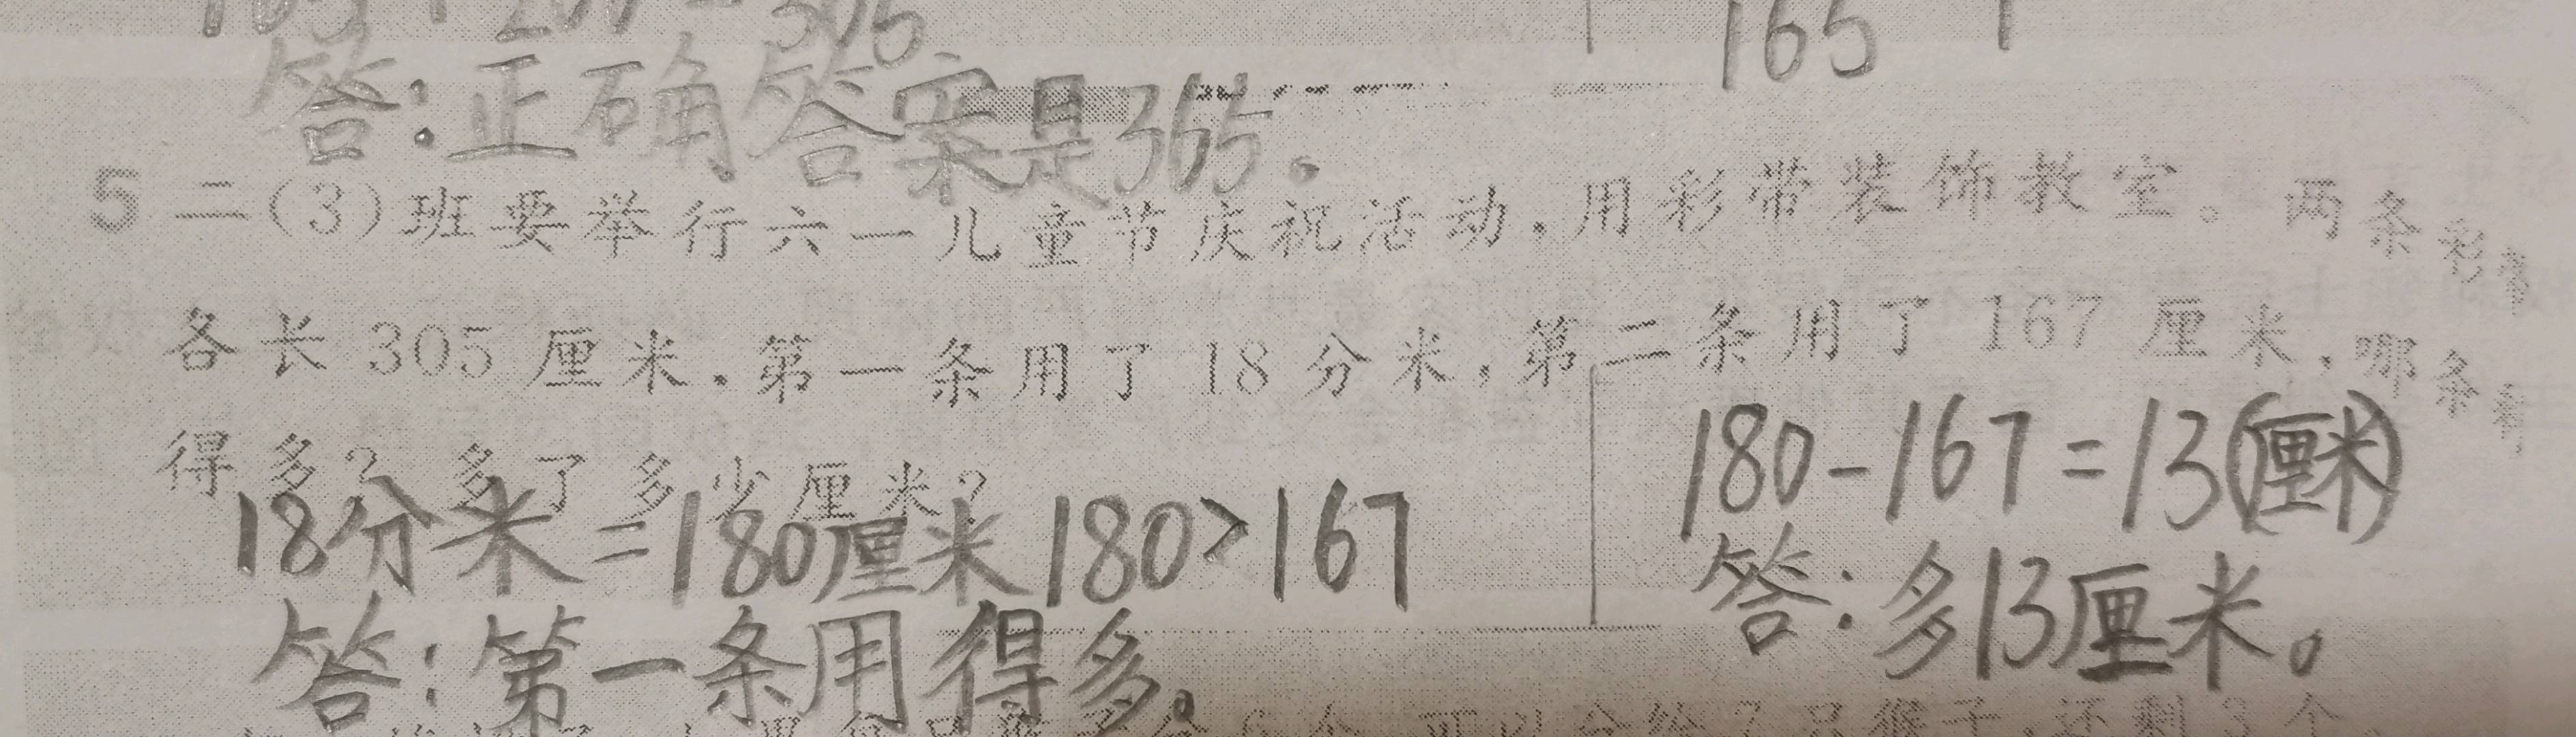 165
答:正确答案是365。
5 二(3)班要举行六一儿童节庆祝活动,用彩带装饰教室。两条彩带
各长305厘米.第一条用了18分米,第二条用了167厘米,哪条剩
得多?多了多少厘米?
18分米=180厘米 180>167
答:第一条用得多。
180-167=13(厘米)
答:多13厘米。